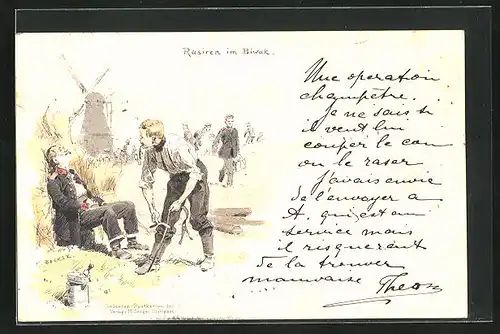 Rasiren im Biwak.
Une operation
champêtre.
je ne sais si
il veut lui
couper le cou
ou le raser
j'avais envie
de l'envoyer a
A. qui est au
service mais
il risquerait
de la trouver
mauvaise
BECKER